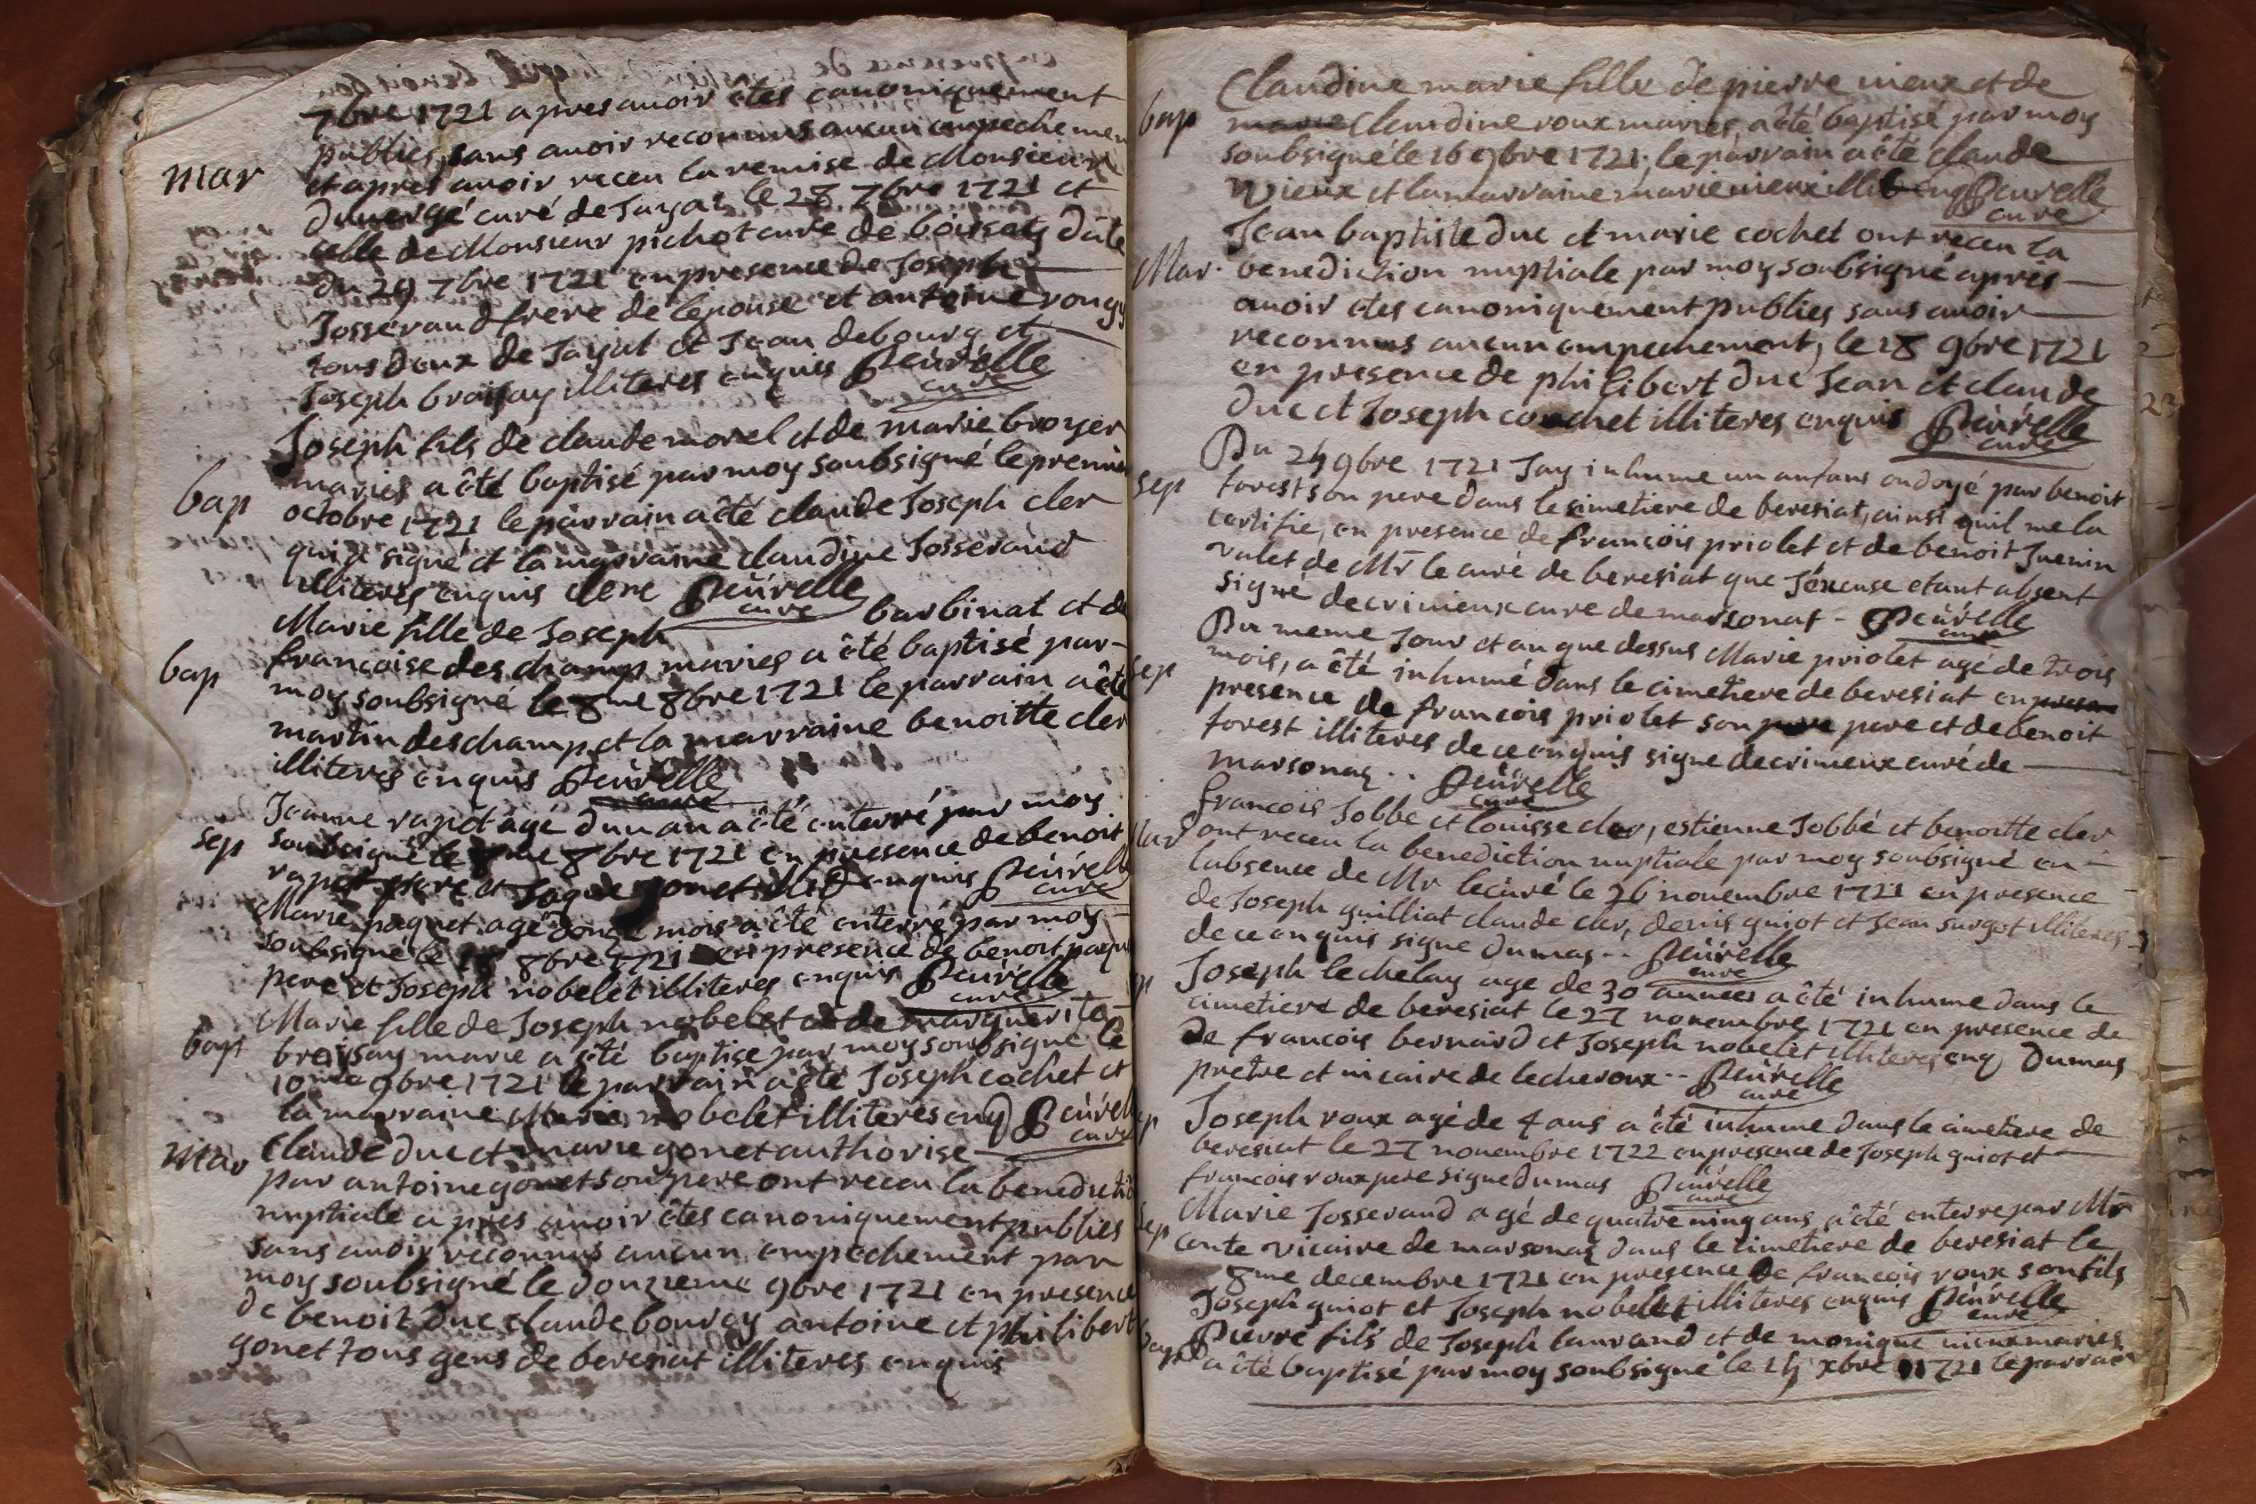 7bre 1721 apres avoir êtes canoniquement
mar
publies, sans avoir reconnus aucun empechemen
et apres avoir receu la remise de Monsieur
duvergé curé de Jayat le 28 7bre 1721 et
celle de Monsieur pichot cure de boissey dâte
du 29 7bre 1721 en presence de Joseph
Josserand frere de lepouse et antoine rongy
tous deux de Jayat et Jean debourg et
Joseph braissay illiteres enquis Peúrelle
cure
Joseph fils de claude morel et de marie broyer
bap
maries a êté baptisé par moy soubsigné le premier
octobre 1721 le parrain a êté claude Joseph cler
qui a signé et la marraine claudine Josserand
illiteres enquis clerc Peúrelle
cure
Marie fille de Joseph barbinat et de
bap
francoise deschamp maries a êté baptisé par
moy soubsigné le 8me 8bre 1721 le parrain a êté
martin deschamp et la marraine benoitte cler
illiteres enquis Peúrelle
cure
Jeanne rapot âgé dun an a êté enterré par moy
sep
soubsigné le 8me 8bre 1721 en presence de benoit
rapot pere et Jaque gonet illit enquis Peúrelle
cure
Marie paquet agé donze mois a êté enterré par moy
soubsigné le 18 8bre 1721 en presence de benoit paque
pere et Joseph nobelet illiteres enquis Peúrelle
cure
Marie fille de Joseph nobelet et de marguerite
bap
braissay marie a êté baptise par moy soubsigné le
10me 9bre 1721 le parrain a êté Joseph cochet et
la marraine Marie nobelet illiteres enq Peúrelle
cure
mar
Claude duc et marie gonet authorise
par antoine gonet son pere ont receu la benedictio
nuptiale apres avoir êtes canoniquement publies
sans avoir reconnus aucun empechement par
moy soubsigné le douzieme 9bre 1721 en presence
de benoit duc claude bourcy antoine et philibert
gonet tous gens de beresiat illiteres enquis
Claudine marie fille de pierre vieux et de
bap
marie claudine roux maries, a êté baptisé par moy
soubsigné le 16 9bre 1721, le parrain a êté claude
vieux et la marraine marie vieux illit enq Peurelle
cure
Jean baptiste duc et marie cochet ont receu la
Mar.
benediction nuptiale par moy soubsigné apres
avoir êtes canoniquement publies sans avoir
reconnus aucun empechement, le 18 9bre 1721
en presence de philibert duc Jean et claude
duc et Joseph cochet illiteres enquis Peúrelle
cure
Du 24 9bre 1721 Jay inhume un anfant ondoyé par benoit
sep
forest son pere dans le simetiere de beresiat, ainsi quil me la
certifie, en presence de francois priolet et de benoit Juenin
valet de Mr le curé de beresiat que Jexcuse etant absent
signé decrimieux cure de marsonat - Peúrelle
cure
Du meme Jour et an que dessus Marie priolet agé de trois
sep
mois, a êté inhumé dans le cimetiere de beresiat en presan
presence de francois priolet son pere pere et de benoit
forest illiteres de ce enquis signe decrimieux curé de
marsonas .. Peúrelle
cure
francois Jobbé et louisse cler, estienne Jobbé et benoitte cler
ont receu la benediction nuptiale par moy soubsigné en
labsence de Mr lecuré le 26 novembre 1721 en presence
de Joseph guilliat claude cler, denis guiot et Jean surgot illiteres
de ce enquis signe dumas .. Peúrelle
cure
Joseph lechelay age de 30 années a êté inhume dans le
cimetiere de beresiat le 27 novembre 1721 en presence de
de francois bernard et Joseph nobelet illiteres enq Dumas
pretre et vicaire de lecheroux .. Peúrelle
cure
Joseph roux agé de 4 ans a êté inhume dans le cimetiere de
beresiat le 27 novembre 1722 en presence de Joseph guiot et
francois roux pere signe dumas Peúrelle
cure
Marie Josserand agé de quatre ving ans a êté enterre par Mr
sep
conte vicaire de marsonas dans le cimetiere de beresiat le
8me decembre 1721 en presence de francois roux son fils
Joseph guiot et Joseph nobelet illiteres enquis Peúrelle
cure
bap
Pierre fils de Joseph laurand et de monique vieux maries
a êté baptisé par moy soubsigné le 14 xbre 1721 le parrain